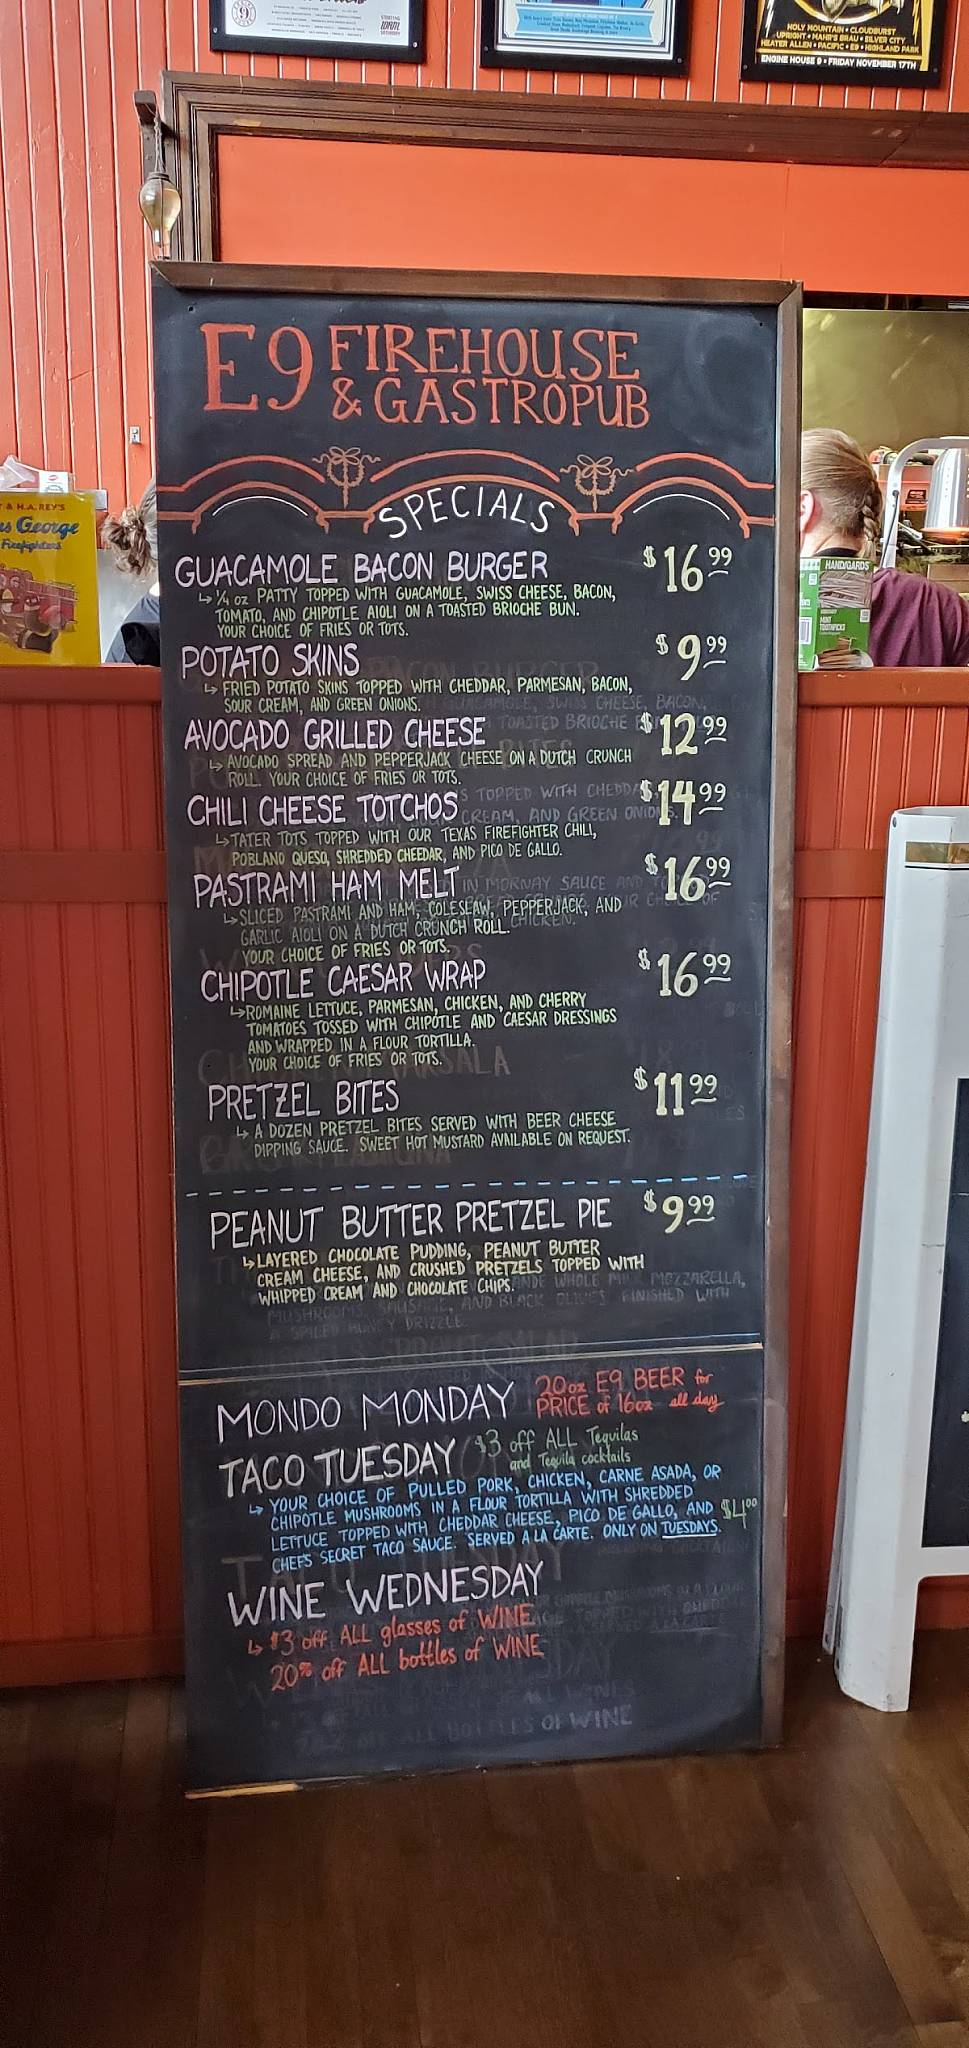 HOLY MOUNTAIN • CLOUDBURST
UPRIGHT • MAHR'S BRAU • SILVER CITY
HEATER ALLEN • PACIFIC • E9 • HIGHLAND PARK
ENGINE HOUSE 9 • FRIDAY NOVEMBER 17TH
E9 FIREHOUSE
& GASTROPUB
SPECIALS
GUACAMOLE BACON BURGER $16.99
↳ 1/4 oz PATTY TOPPED WITH GUACAMOLE, SWISS CHEESE, BACON,
TOMATO, AND CHIPOTLE AIOLI ON A TOASTED BRIOCHE BUN.
YOUR CHOICE OF FRIES OR TOTS.
POTATO SKINS $9.99
↳ FRIED POTATO SKINS TOPPED WITH CHEDDAR, PARMESAN, BACON,
SOUR CREAM, AND GREEN ONIONS.
AVOCADO GRILLED CHEESE $12.99
↳ AVOCADO SPREAD AND PEPPERJACK CHEESE ON A DUTCH CRUNCH
ROLL. YOUR CHOICE OF FRIES OR TOTS.
CHILI CHEESE TOTCHOS $14.99
↳ TATER TOTS TOPPED WITH OUR TEXAS FIREFIGHTER CHILI,
POBLANO QUESO, SHREDDED CHEEDAR, AND PICO DE GALLO.
PASTRAMI HAM MELT $16.99
↳ SLICED PASTRAMI AND HAM, COLESLAW, PEPPERJACK, AND
GARLIC AIOLI ON A DUTCH CRUNCH ROLL.
YOUR CHOICE OF FRIES OR TOTS.
CHIPOTLE CAESAR WRAP $16.99
↳ ROMAINE LETTUCE, PARMESAN, CHICKEN, AND CHERRY
TOMATOES TOSSED WITH CHIPOTLE AND CAESAR DRESSINGS
AND WRAPPED IN A FLOUR TORTILLA.
YOUR CHOICE OF FRIES OR TOTS.
PRETZEL BITES $11.99
↳ A DOZEN PRETZEL BITES SERVED WITH BEER CHEESE
DIPPING SAUCE. SWEET HOT MUSTARD AVAILABLE ON REQUEST.
PEANUT BUTTER PRETZEL PIE $9.99
↳ LAYERED CHOCOLATE PUDDING, PEANUT BUTTER
CREAM CHEESE, AND CRUSHED PRETZELS TOPPED WITH
WHIPPED CREAM AND CHOCOLATE CHIPS.
MONDO MONDAY 20oz E9 BEER for
PRICE of 16oz all day
TACO TUESDAY $3 off ALL Tequilas
and Tequila cocktails
↳ YOUR CHOICE OF PULLED PORK, CHICKEN, CARNE ASADA, OR
CHIPOTLE MUSHROOMS IN A FLOUR TORTILLA WITH SHREDDED
LETTUCE TOPPED WITH CHEDDAR CHEESE, PICO DE GALLO, AND $4.00
CHEFS SECRET TACO SAUCE. SERVED A LA CARTE. ONLY ON TUESDAYS.
WINE WEDNESDAY
↳ $3 off ALL glasses of WINE
20% off ALL bottles of WINE
& H.A. REY'S
George
Firefighters
HANDGARDS
MINT
TOOTHPICKS